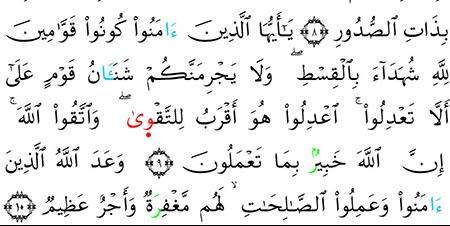 بِذَاتِ ٱلصُّدُورِ ۝٨ يَٰٓأَيُّهَا ٱلَّذِينَ ءَامَنُوا۟ كُونُوا۟ قَوَّٰمِينَ
لِلَّهِ شُهَدَآءَ بِالْقِسْطِۖ وَلَا يَجْرِمَنَّكُمْ شَنَـَٔانُ قَوْمٍ عَلَىٰٓ
أَلَّا تَعْدِلُوا۟ۚ اَعْدِلُوا۟ هُوَ أَقْرَبُ لِلتَّقْوىٰۖ وَاَتَّقُوا۟ اَللَّهَۚ
إِنَّ اَللَّهَ خَبِيرٌۢ بِمَا تَعْمَلُونَ ۝٩ وَعَدَ اَللَّهُ اُلَّذِينَ
ءَامَنُوا۟ وَعَمِلُوا۟ اُلصَّٰلِحَٰتِۙ لَهُم مَّغْفِرَةٌ وَأَجْرٌ عَظِيمٌ ۝١٠